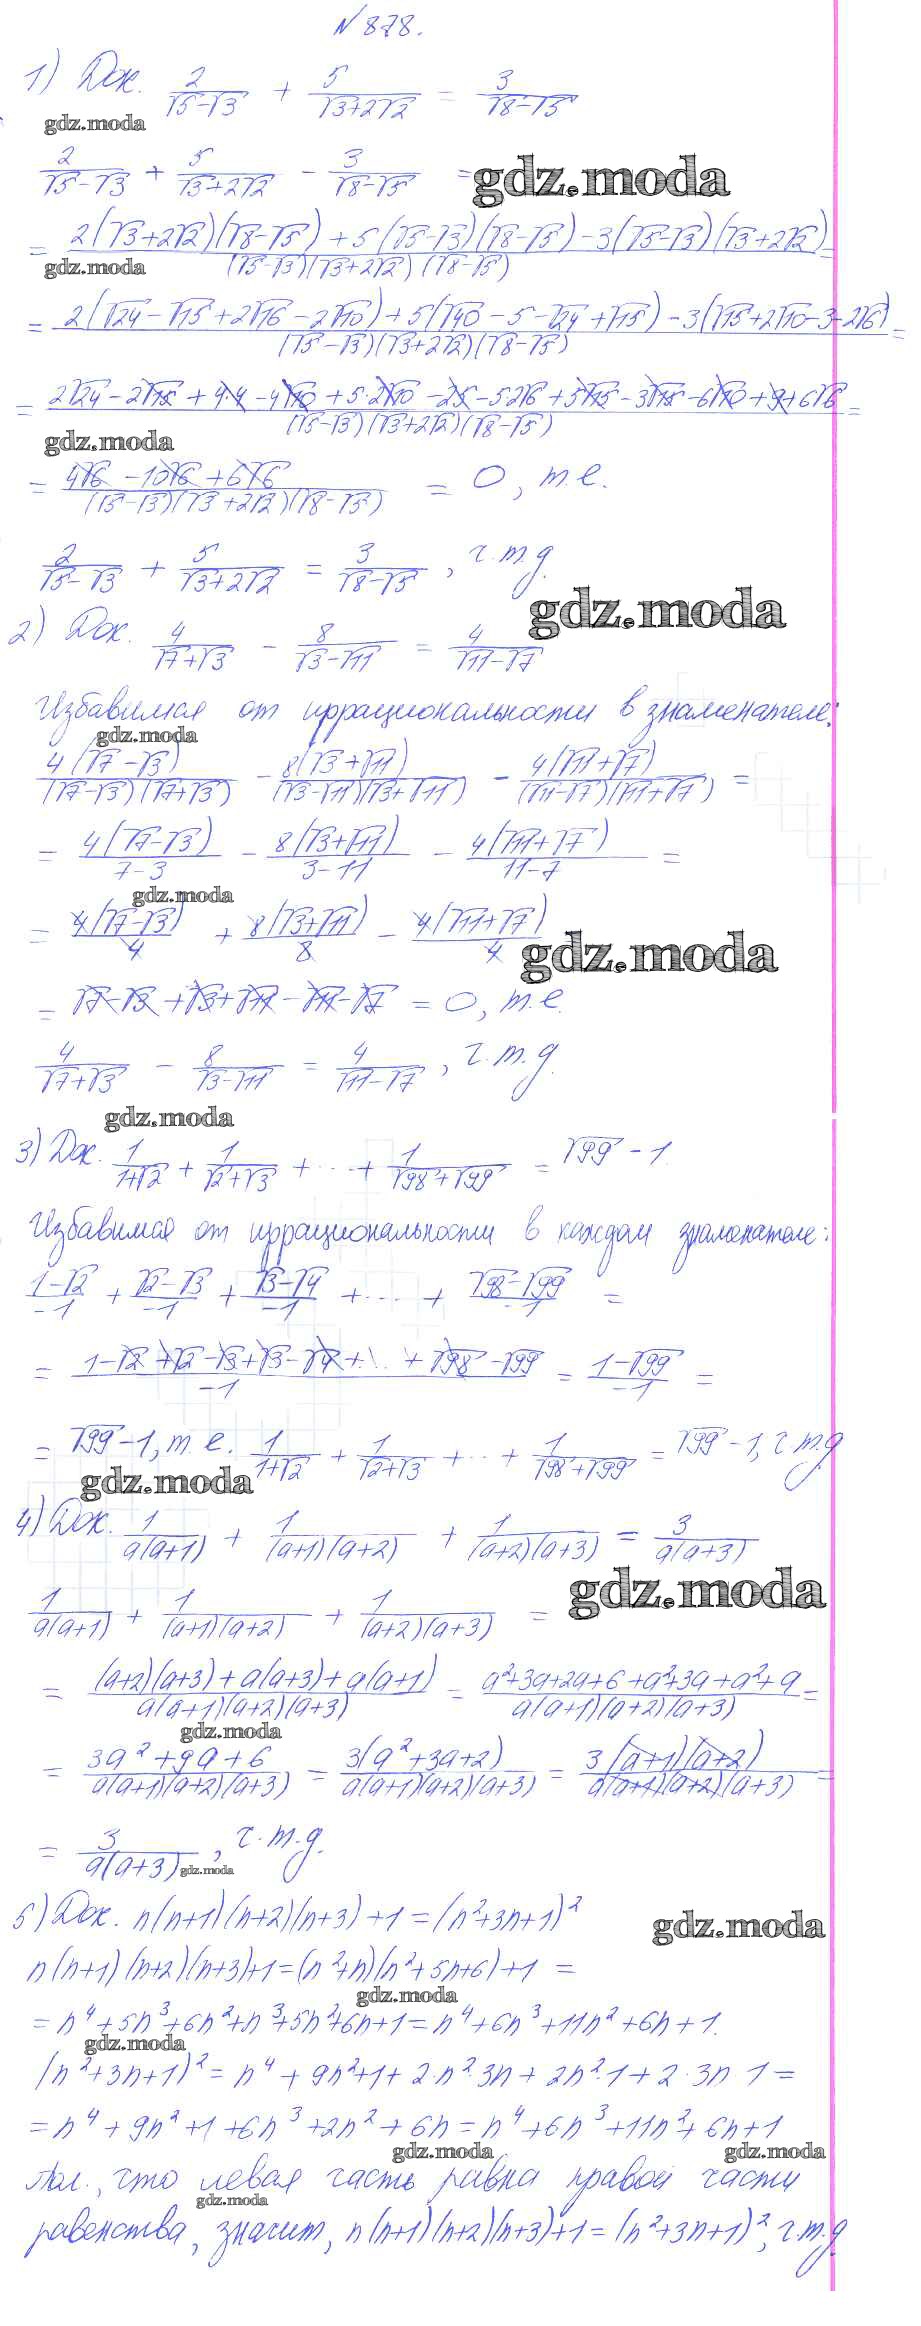 N 878.
1) Док. 2/(√5-√3) + 5/(√3+2√2) = 3/(√8-√5)
gdz.moda
2/(√5-√3) + 5/(√3+2√2) - 3/(√8-√5) =
gdz.moda
= (2(√3+2√2)(√8-√5) + 5(√5-√3)(√8-√5) - 3(√5-√3)(√3+2√2))/((√5-√3)(√3+2√2)(√8-√5)) =
gdz.moda
= (2(√24 - √15 + 2√16 - 2√10) + 5(√40 - 5 - √24 + √15) - 3(√15+2√10-3-2√6))/((√5-√3)(√3+2√2)(√8-√5)) =
= (2√24 - 2√15 + 4·4 - 4√10 + 5·2√10 - 25 - 5·2√6 + 5√15 - 3√15 - 6√10 + 9 + 6√6)/((√5-√3)(√3+2√2)(√8-√5)) =
gdz.moda
= (4√6 - 10√6 + 6√6)/((√5-√3)(√3+2√2)(√8-√5)) = 0, т.е.
2/(√5-√3) + 5/(√3+2√2) = 3/(√8-√5), ч.т.д.
gdz.moda
2) Док. 4/(√7+√3) - 8/(√3-√11) = 4/(√11-√7)
Избавимся от иррациональности в знаменателе:
gdz.moda
4(√7-√3)/((√7-√3)(√7+√3)) - 8(√3+√11)/((√3-√11)(√3+√11)) - 4(√11+√7)/((√11-√7)(√11+√7)) =
= 4(√7-√3)/(7-3) - 8(√3+√11)/(3-11) - 4(√11+√7)/(11-7) =
gdz.moda
= 4(√7-√3)/4 + 8(√3+√11)/8 - 4(√11+√7)/4
gdz.moda
= √7-√3+√3+√11-√11-√7 = 0, т.е.
4/(√7+√3) - 8/(√3-√11) = 4/(√11-√7), ч.т.д.
gdz.moda
3) Док. 1/(1+√2) + 1/(√2+√3) + ... + 1/(√98+√99) = √99 - 1.
Избавимся от иррациональности в каждом знаменателе:
(1-√2)/-1 + (√2-√3)/-1 + (√3-√4)/-1 + ... + (√98-√99)/-1 =
= (1-√2+√2-√3+√3-√4+...+√98-√99)/-1 = (1-√99)/-1 =
= √99-1, т.е. 1/(1+√2) + 1/(√2+√3) + ... + 1/(√98+√99) = √99-1, ч.т.д
gdz.moda
4) Док. 1/(a(a+1)) + 1/((a+1)(a+2)) + 1/((a+2)(a+3)) = 3/(a(a+3))
gdz.moda
1/(a(a+1)) + 1/((a+1)(a+2)) + 1/((a+2)(a+3)) =
= ((a+2)(a+3)+a(a+3)+a(a+1))/(a(a+1)(a+2)(a+3)) = (a²+3a+2a+6+a²+3a+a²+a)/(a(a+1)(a+2)(a+3)) =
gdz.moda
= (3a²+9a+6)/(a(a+1)(a+2)(a+3)) = 3(a²+3a+2)/(a(a+1)(a+2)(a+3)) = 3(a+1)(a+2)/(a(a+1)(a+2)(a+3)) =
= 3/(a(a+3)), ч.т.д.
gdz.moda
5) Док. n(n+1)(n+2)(n+3)+1=(n²+3n+1)²
gdz.moda
n(n+1)(n+2)(n+3)+1=(n²+n)(n²+5n+6)+1 =
gdz.moda
= n⁴+5n³+6n²+n³+5n²+6n+1=n⁴+6n³+11n²+6n+1.
gdz.moda
(n²+3n+1)²= n⁴+9n²+1+2·n²·3n+2n²·1+2·3n·1=
= n⁴+9n²+1+6n³+2n²+6n=n⁴+6n³+11n²+6n+1
gdz.moda gdz.moda
Пол., что левая часть равна правой части
gdz.moda
равенства, значит, n(n+1)(n+2)(n+3)+1=(n²+3n+1)², ч.т.д